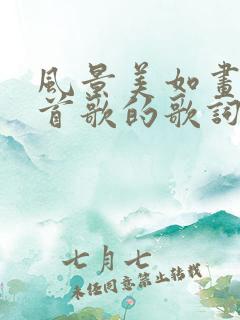 風景美如畫
首歌的歌詞
七月七
未任同意禁止轉載